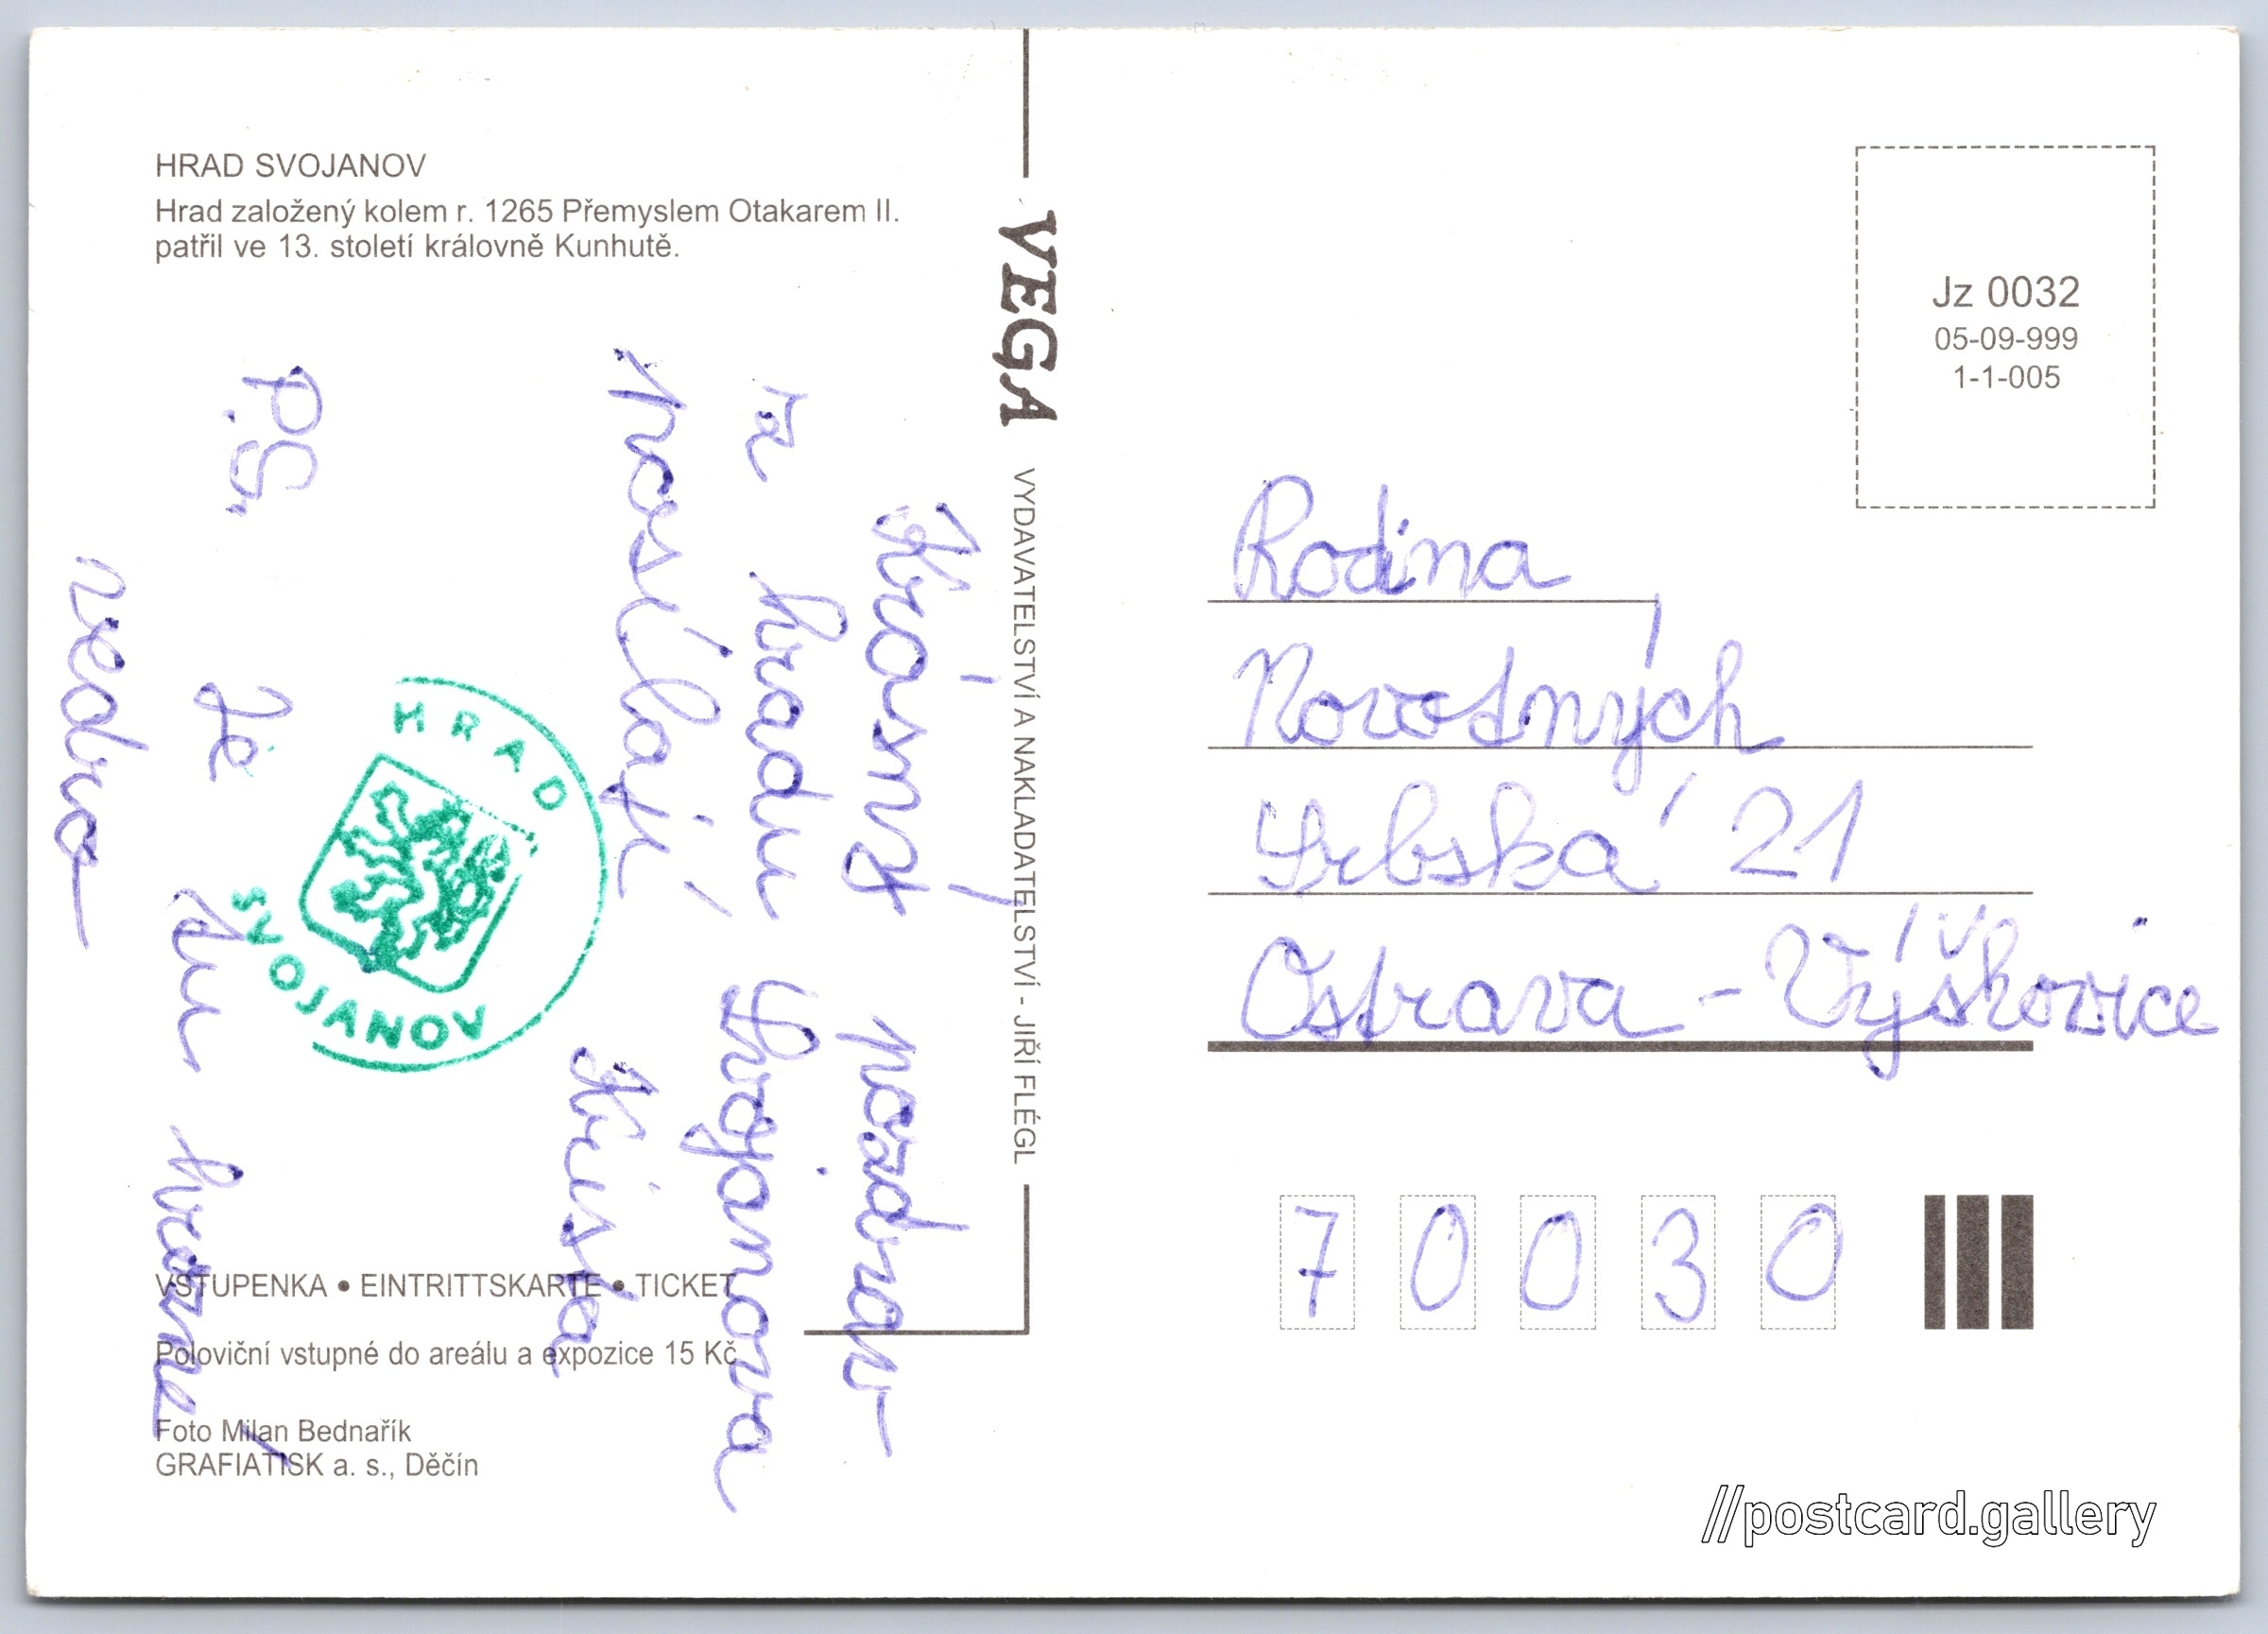 HRAD SVOJANOV
Hrad založený kolem r. 1265 Přemyslem Otakarem II.
patřil ve 13. století královně Kunhutě.
Krásný pozdrav
z hradu Svojanova
posílají
Kriska
P.S.
Je tu hrozné
vedro
HRAD
SVOJANOV
VSTUPENKA • EINTRITTSKARTE • TICKET
Poloviční vstupné do areálu a expozice 15 Kč
Foto Milan Bednařík
GRAFIATISK a. s., Děčín
VEGA VYDAVATELSTVÍ A NAKLADATELSTVÍ - JIŘÍ FLÉGL
Jz 0032
05-09-999
1-1-005
Rodina
Novotných
Srbská 21
Ostrava - Výškovice
70030
//postcard.gallery